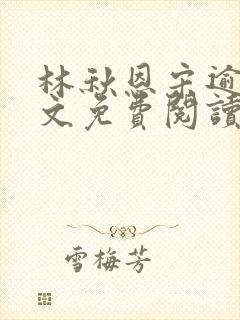 林秋恩宋逾
文免費閱讀
雪梅芳